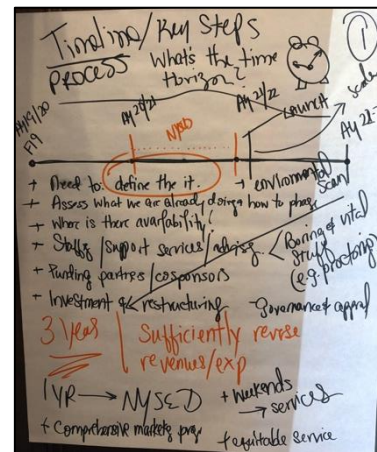 Timeline/Key Steps
①
PROCESS
What's the time
Horizon?
AY 19/20
F19
AY 20/21
AY 21/22
LAUNCH
Scale
AY 22-
+ Need to: define the it.
→ environmental
scan
+ Assess what we are already doing & how to phase
+ Where is there availability?
+ Staffing/support services/advising
Boring & vital
stuff
(e.g. proctoring)
+ Funding partners/cosponsors
+ Investment & restructuring
-Governance & approval
3 Year
Sufficiently reverse
revenues/exp
1 YR → NYSED
+ weekends
→ services
+ Comprehensive markets
+ equitable service